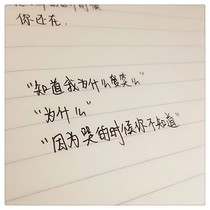 时候
你还在.
“知道我为什么变么”
“为什么”
“因为哭的时候你不知道”